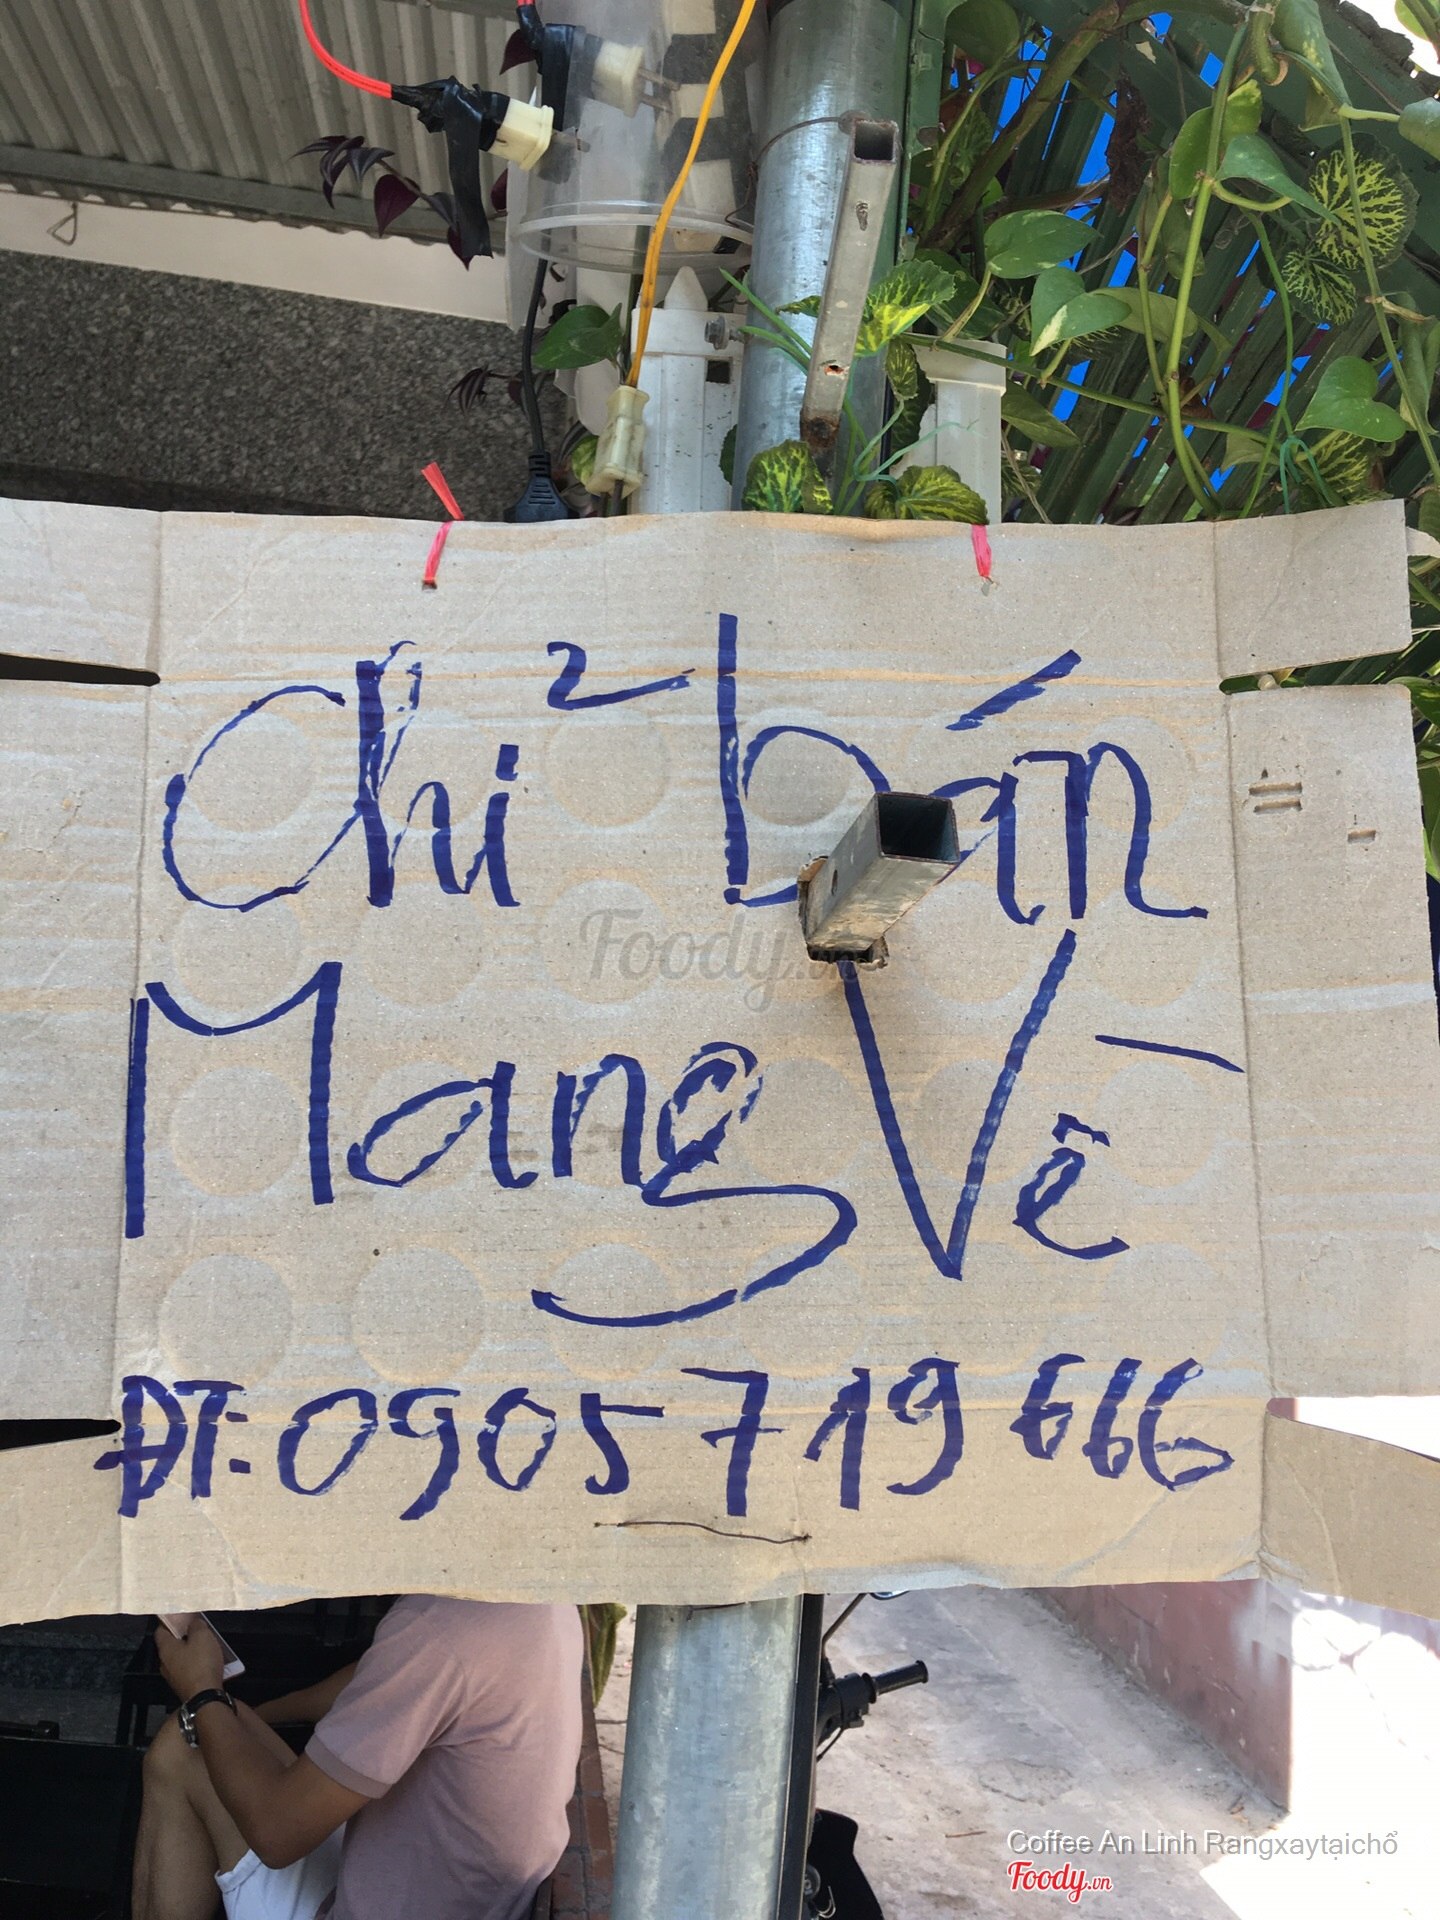 Chỉ bán
Foody.vn
Mang Về
ĐT: 0905 719 666
Coffee An Linh Rangxaytạichổ
Foody.vn